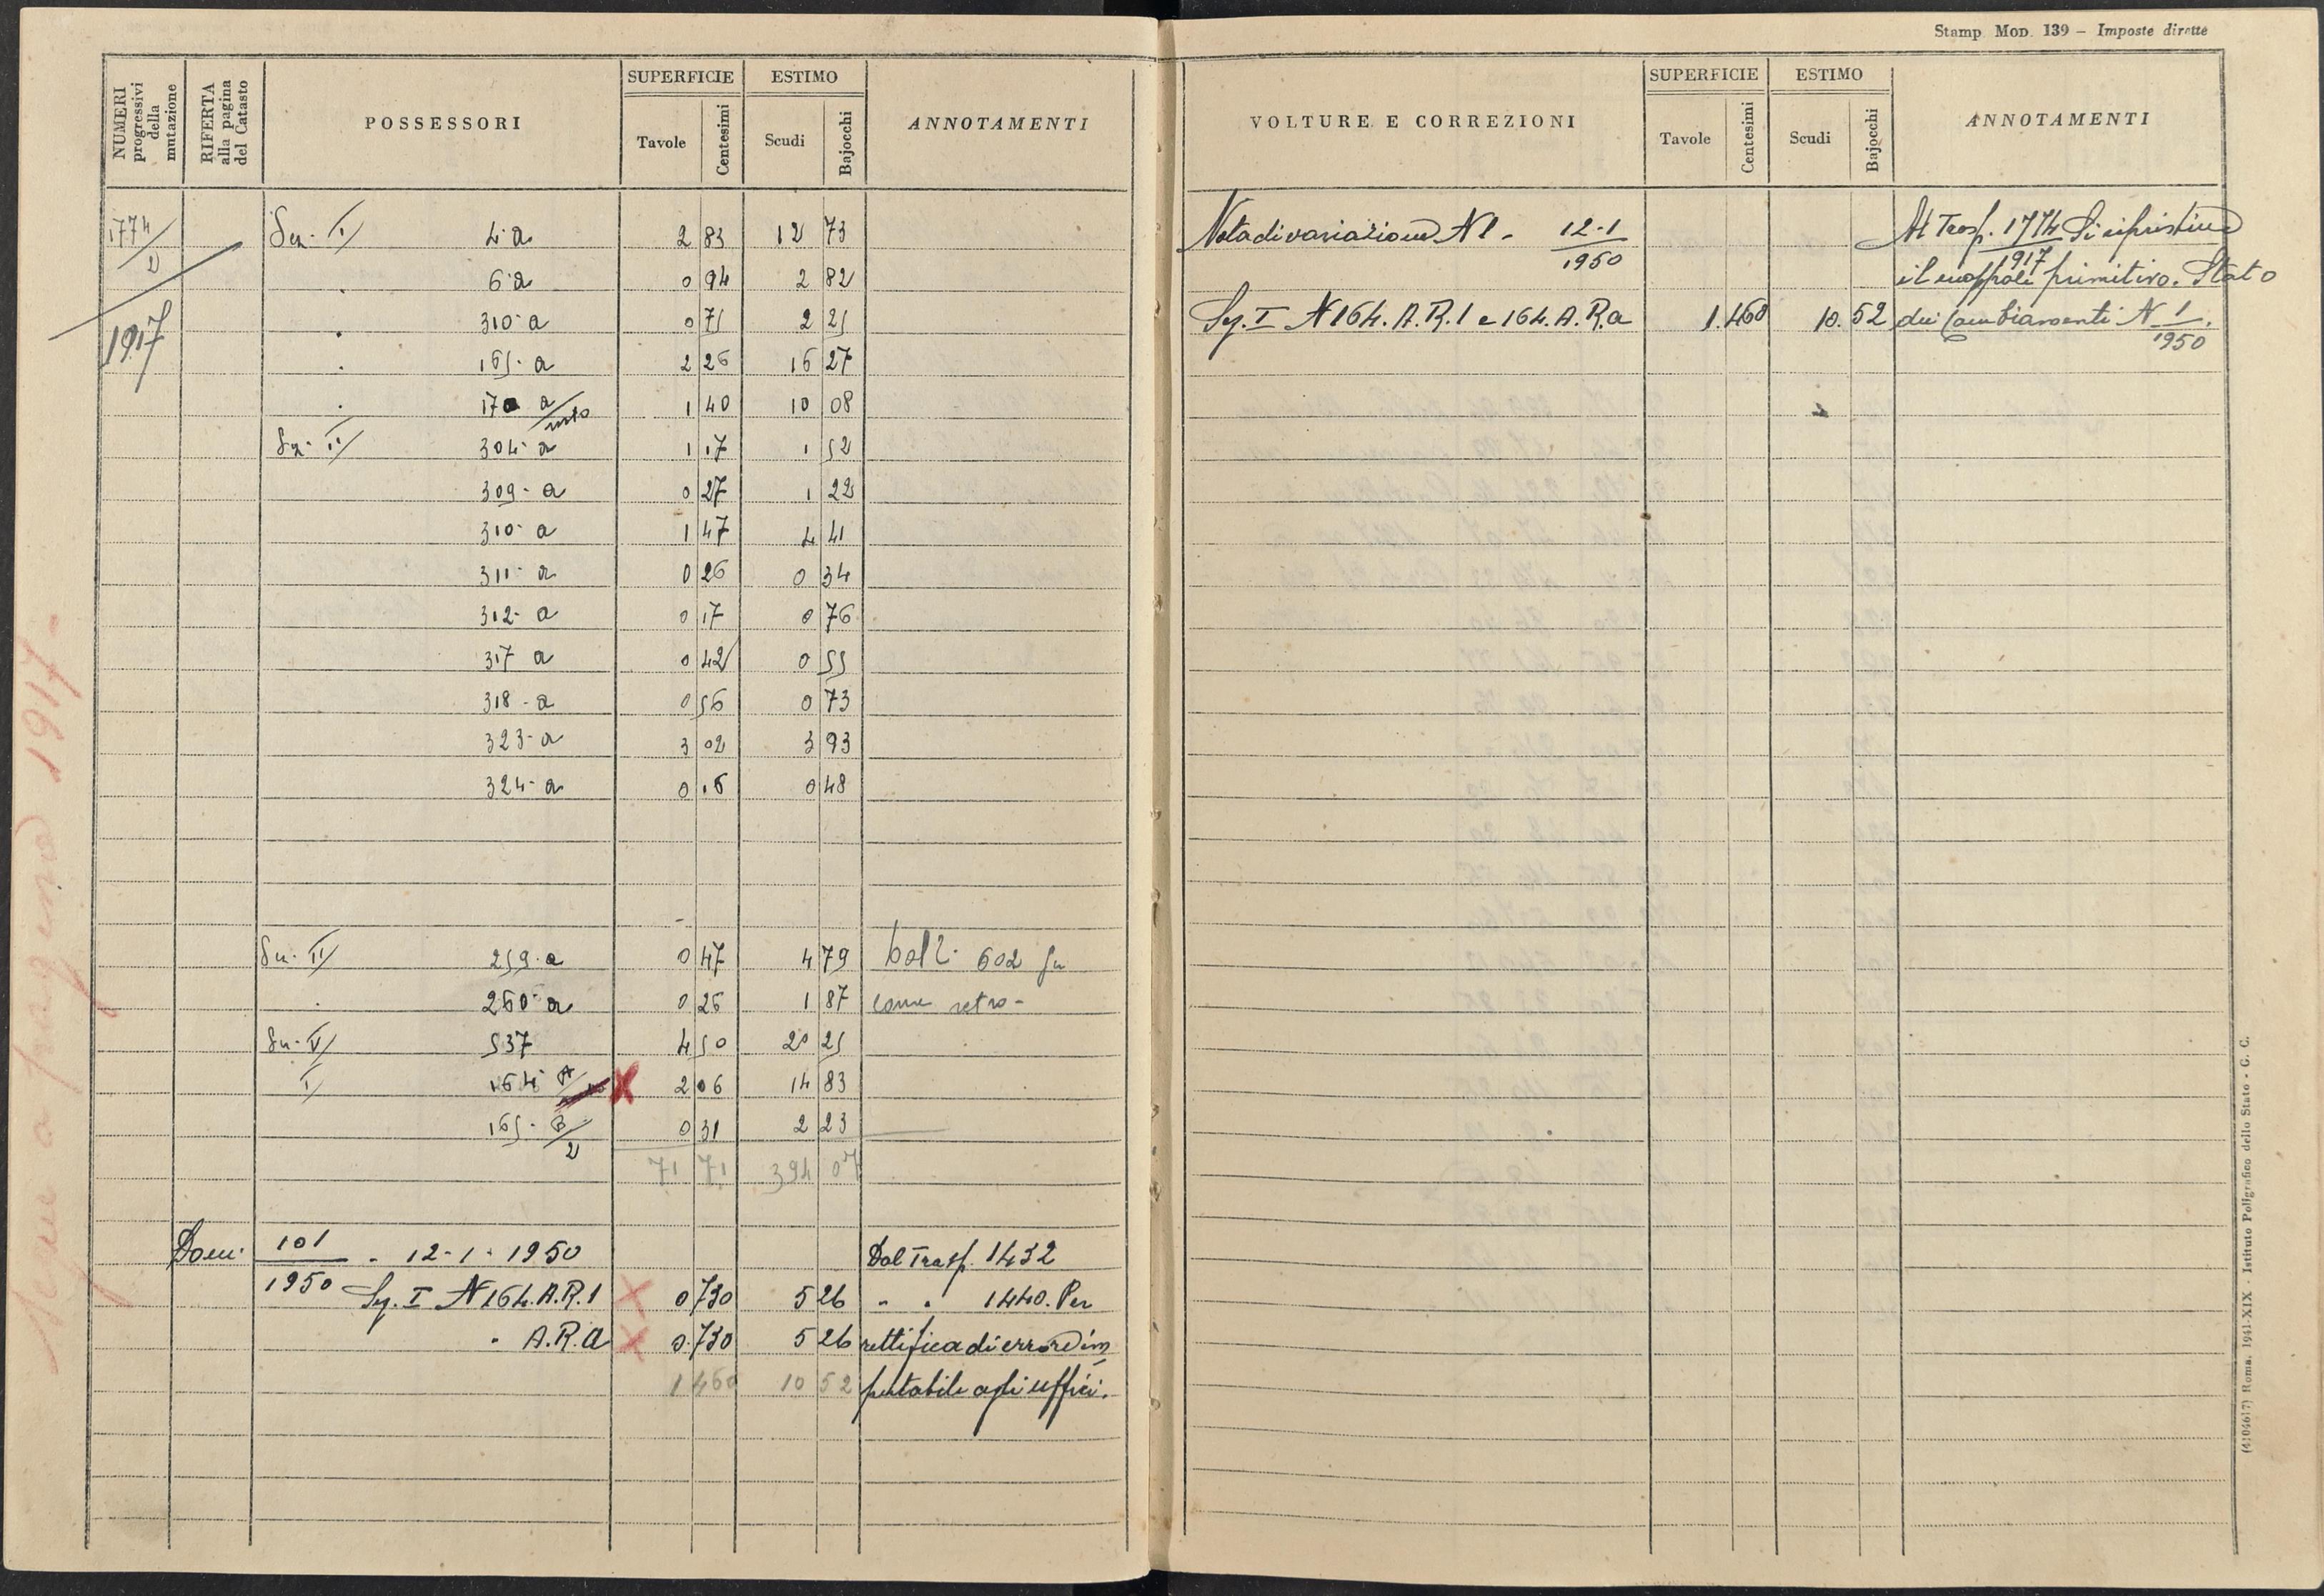 NUMERI progressivi della mutazione
RIFERTA alla pagina del Catasto
POSSESSORI
SUPERFICIE
Tavole Centesimi
ESTIMO
Scudi Bajocchi
ANNOTAMENTI
1774/2
1917
Sez. I/ 4 a 2 83 12 73
" 6 a 0 94 2 82
" 310 a 0 75 2 25
" 165 a 2 26 16 27
" 170 a 1 40 10 08
Sez. II/ 304 a 1 17 1 52
309 - a 0 27 1 22
310 a 1 47 4 41
311 a 0 26 0 34
312 a 0 17 0 76
317 a 0 42 0 55
318 - a 0 56 0 73
323 - a 3 02 3 93
324 - a 0 16 0 48
Sez. II/ 259 - a 0 47 4 79 602
" 260 - a 0 26 1 87 come retro -
Sez. V/ 537 4 50 20 25
I/ 164 A X 2 06 14 83
165 - B/2 0 31 2 23
71 71 394 07
Dom. 101/1950 - 12-1-1950 Dal Trasp. 1432
Sez. I N 164. A.R.1 X 0 730 5 26 " " 1440. Per
" A.R.a X 0.730 5 26 rettifica di errore im
1 460 10 52 putabile agli uffici.
Segue a pagina 1917 -
Stamp Mod. 139 - Imposte dirette
VOLTURE E CORREZIONI
SUPERFICIE
Tavole Centesimi
ESTIMO
Scudi Bajocchi
ANNOTAMENTI
Nota di variazione N 1 - 12-1/1950 Al Trasp. 1774/1917 Si ripristina
il primitivo. Stato
Sez. I N 164. A.R.1 e 164. A.R.a 1.460 10. 52 dei Cambiamenti N 1/1950.
(4104617) Roma, 1941-XIX - Istituto Poligrafico dello Stato - G. C.